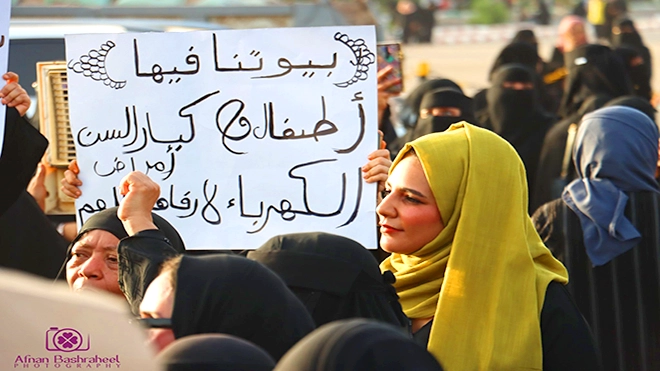 بيوتنا فيها
أطفال و كبار السن
أمراض
الكهرباء لا رفاهية لهم
Afnan Bashraheel
PHOTOGRAPHY